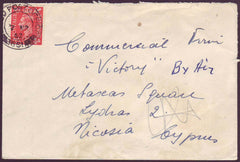 Commercial Firm
"Victory" By Air
Metaxas Square
Lydras 2
Nicosia Cyprus